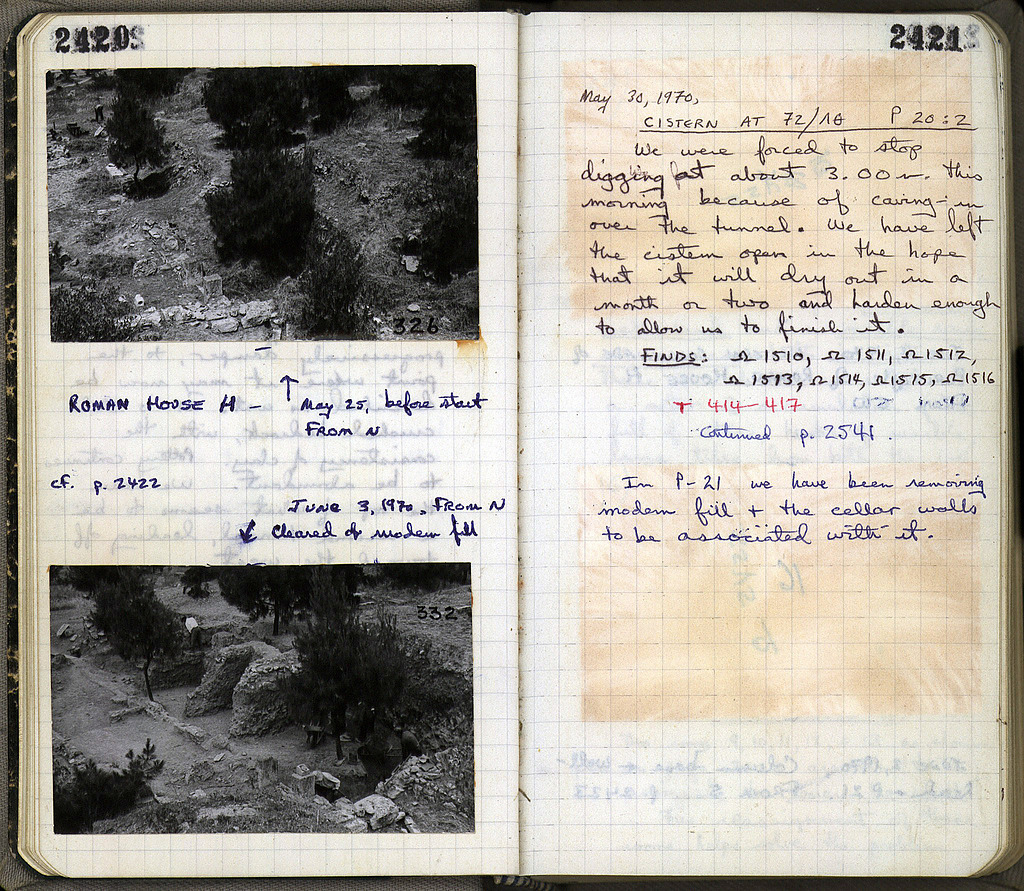 2420
326
ROMAN HOUSE H - ↑ May 25, before start
FROM N
cf. p. 2422
JUNE 3, 1970, FROM N
↙ Cleared of modern fill
332
2421
May 30, 1970,
CISTERN AT 72/ΛΘ P 20:2
We were forced to stop
digging at about 3.00 this
morning because of caving-in
over the tunnel. We have left
the cistern open in the hope
that it will dry out in a
month or two and harden enough
to allow us to finish it.
FINDS: Ω 1510, Ω 1511, Ω 1512,
Ω 1513, Ω 1514, Ω 1515, Ω 1516
T 414-417
Continued p. 2541.
In P-21 we have been removing
modern fill + the cellar walls
to be associated with it.